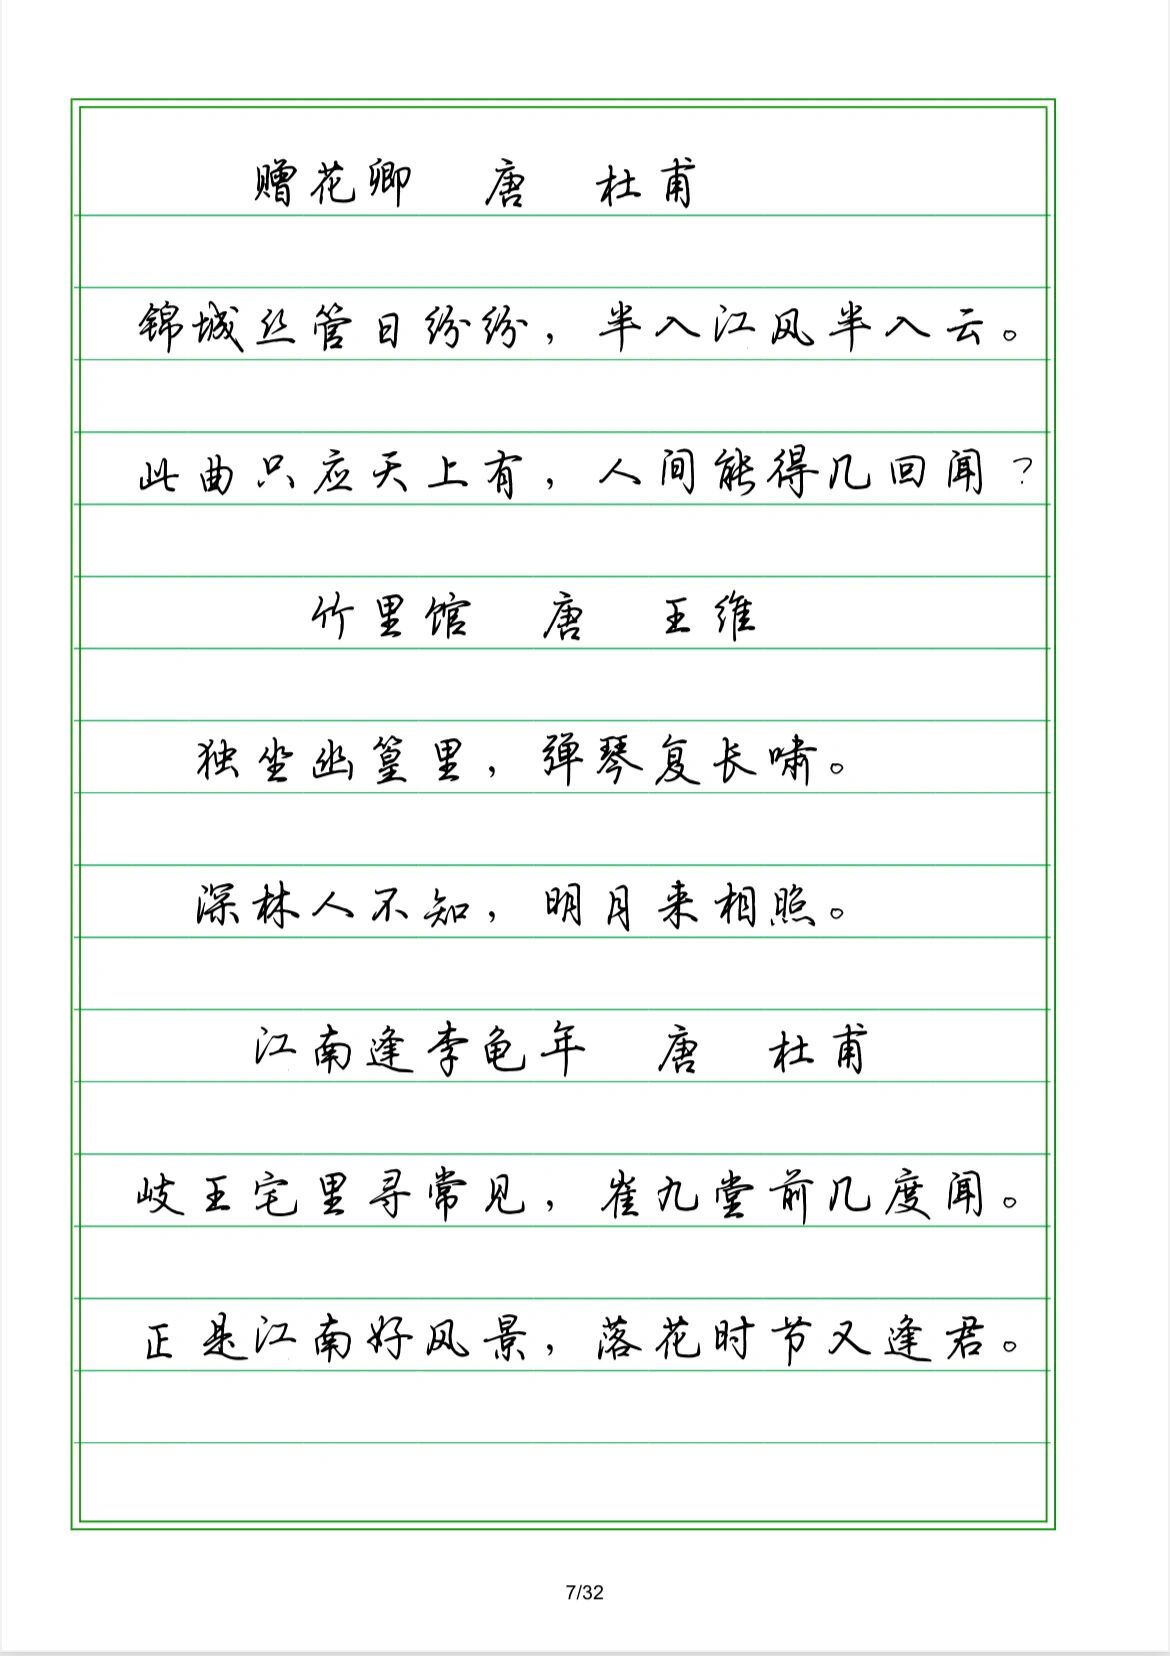 赠花卿 唐 杜甫
锦城丝管日纷纷，半入江风半入云。
此曲只应天上有，人间能得几回闻？
竹里馆 唐 王维
独坐幽篁里，弹琴复长啸。
深林人不知，明月来相照。
江南逢李龟年 唐 杜甫
岐王宅里寻常见，崔九堂前几度闻。
正是江南好风景，落花时节又逢君。
7/32